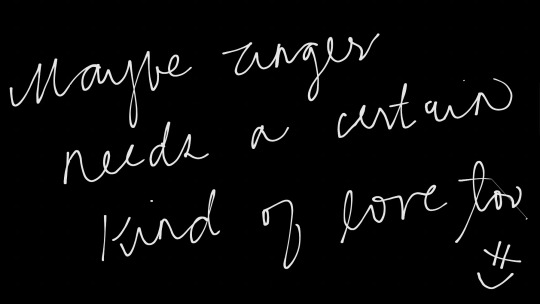 Maybe anger
needs a certain
kind of love too